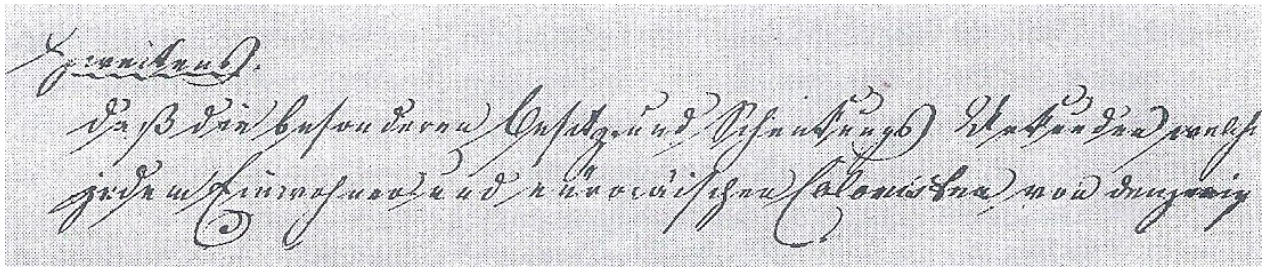 zweitens.
daß die besonderen Besitz und Schenkungs Urkunden welche
jedem Einwohner und europäischen Colonisten von